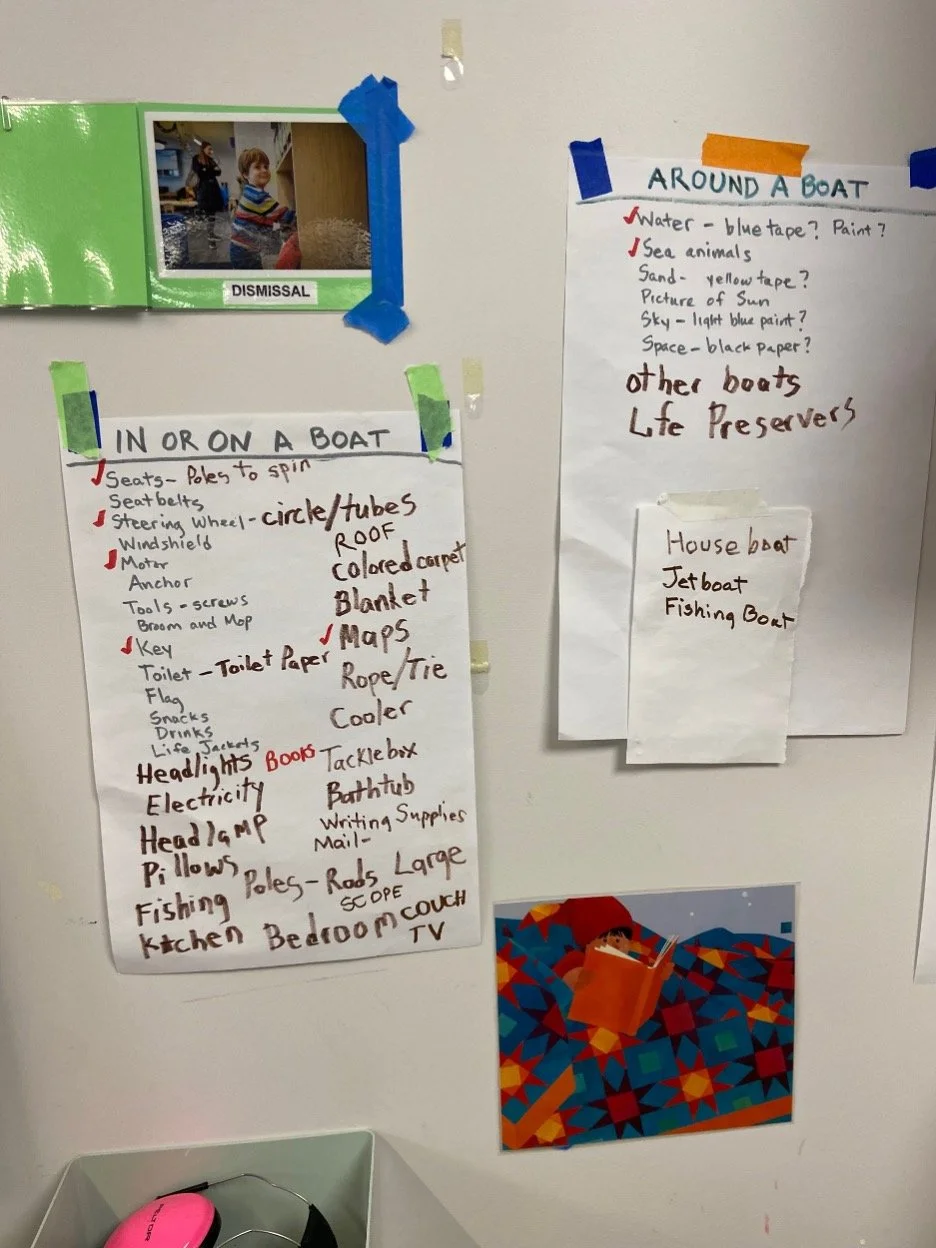 DISMISSAL
AROUND A BOAT
Water – blue tape? Paint?
Sea animals
Sand- yellow tape?
Picture of Sun
Sky – light blue paint?
Space – black paper?
other boats
Life Preservers
House boat
Jetboat
Fishing Boat
IN OR ON A BOAT
Seats – Poles to spin
Seatbelts
Steering Wheel – circle/tubes
Windshield
Motor
Anchor
Tools – screws
Broom and Mop
Key
Toilet – Toilet Paper
Flag
Snacks
Drinks
Life Jackets
Headlights Books
Electricity
Headlamp
Pillows
Fishing Poles – Rods Large
Kitchen Bedroom
ROOF
Colored carpet
Blanket
Maps
Rope/Tie
Cooler
Tacklebox
Bathtub
Writing Supplies
Mail-
SCOPE
COUCH
TV
PELTOR